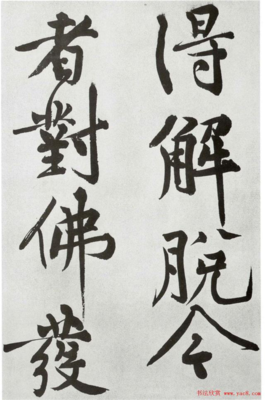 得解脫今
者對佛發
书法欣赏 www.yac8.com